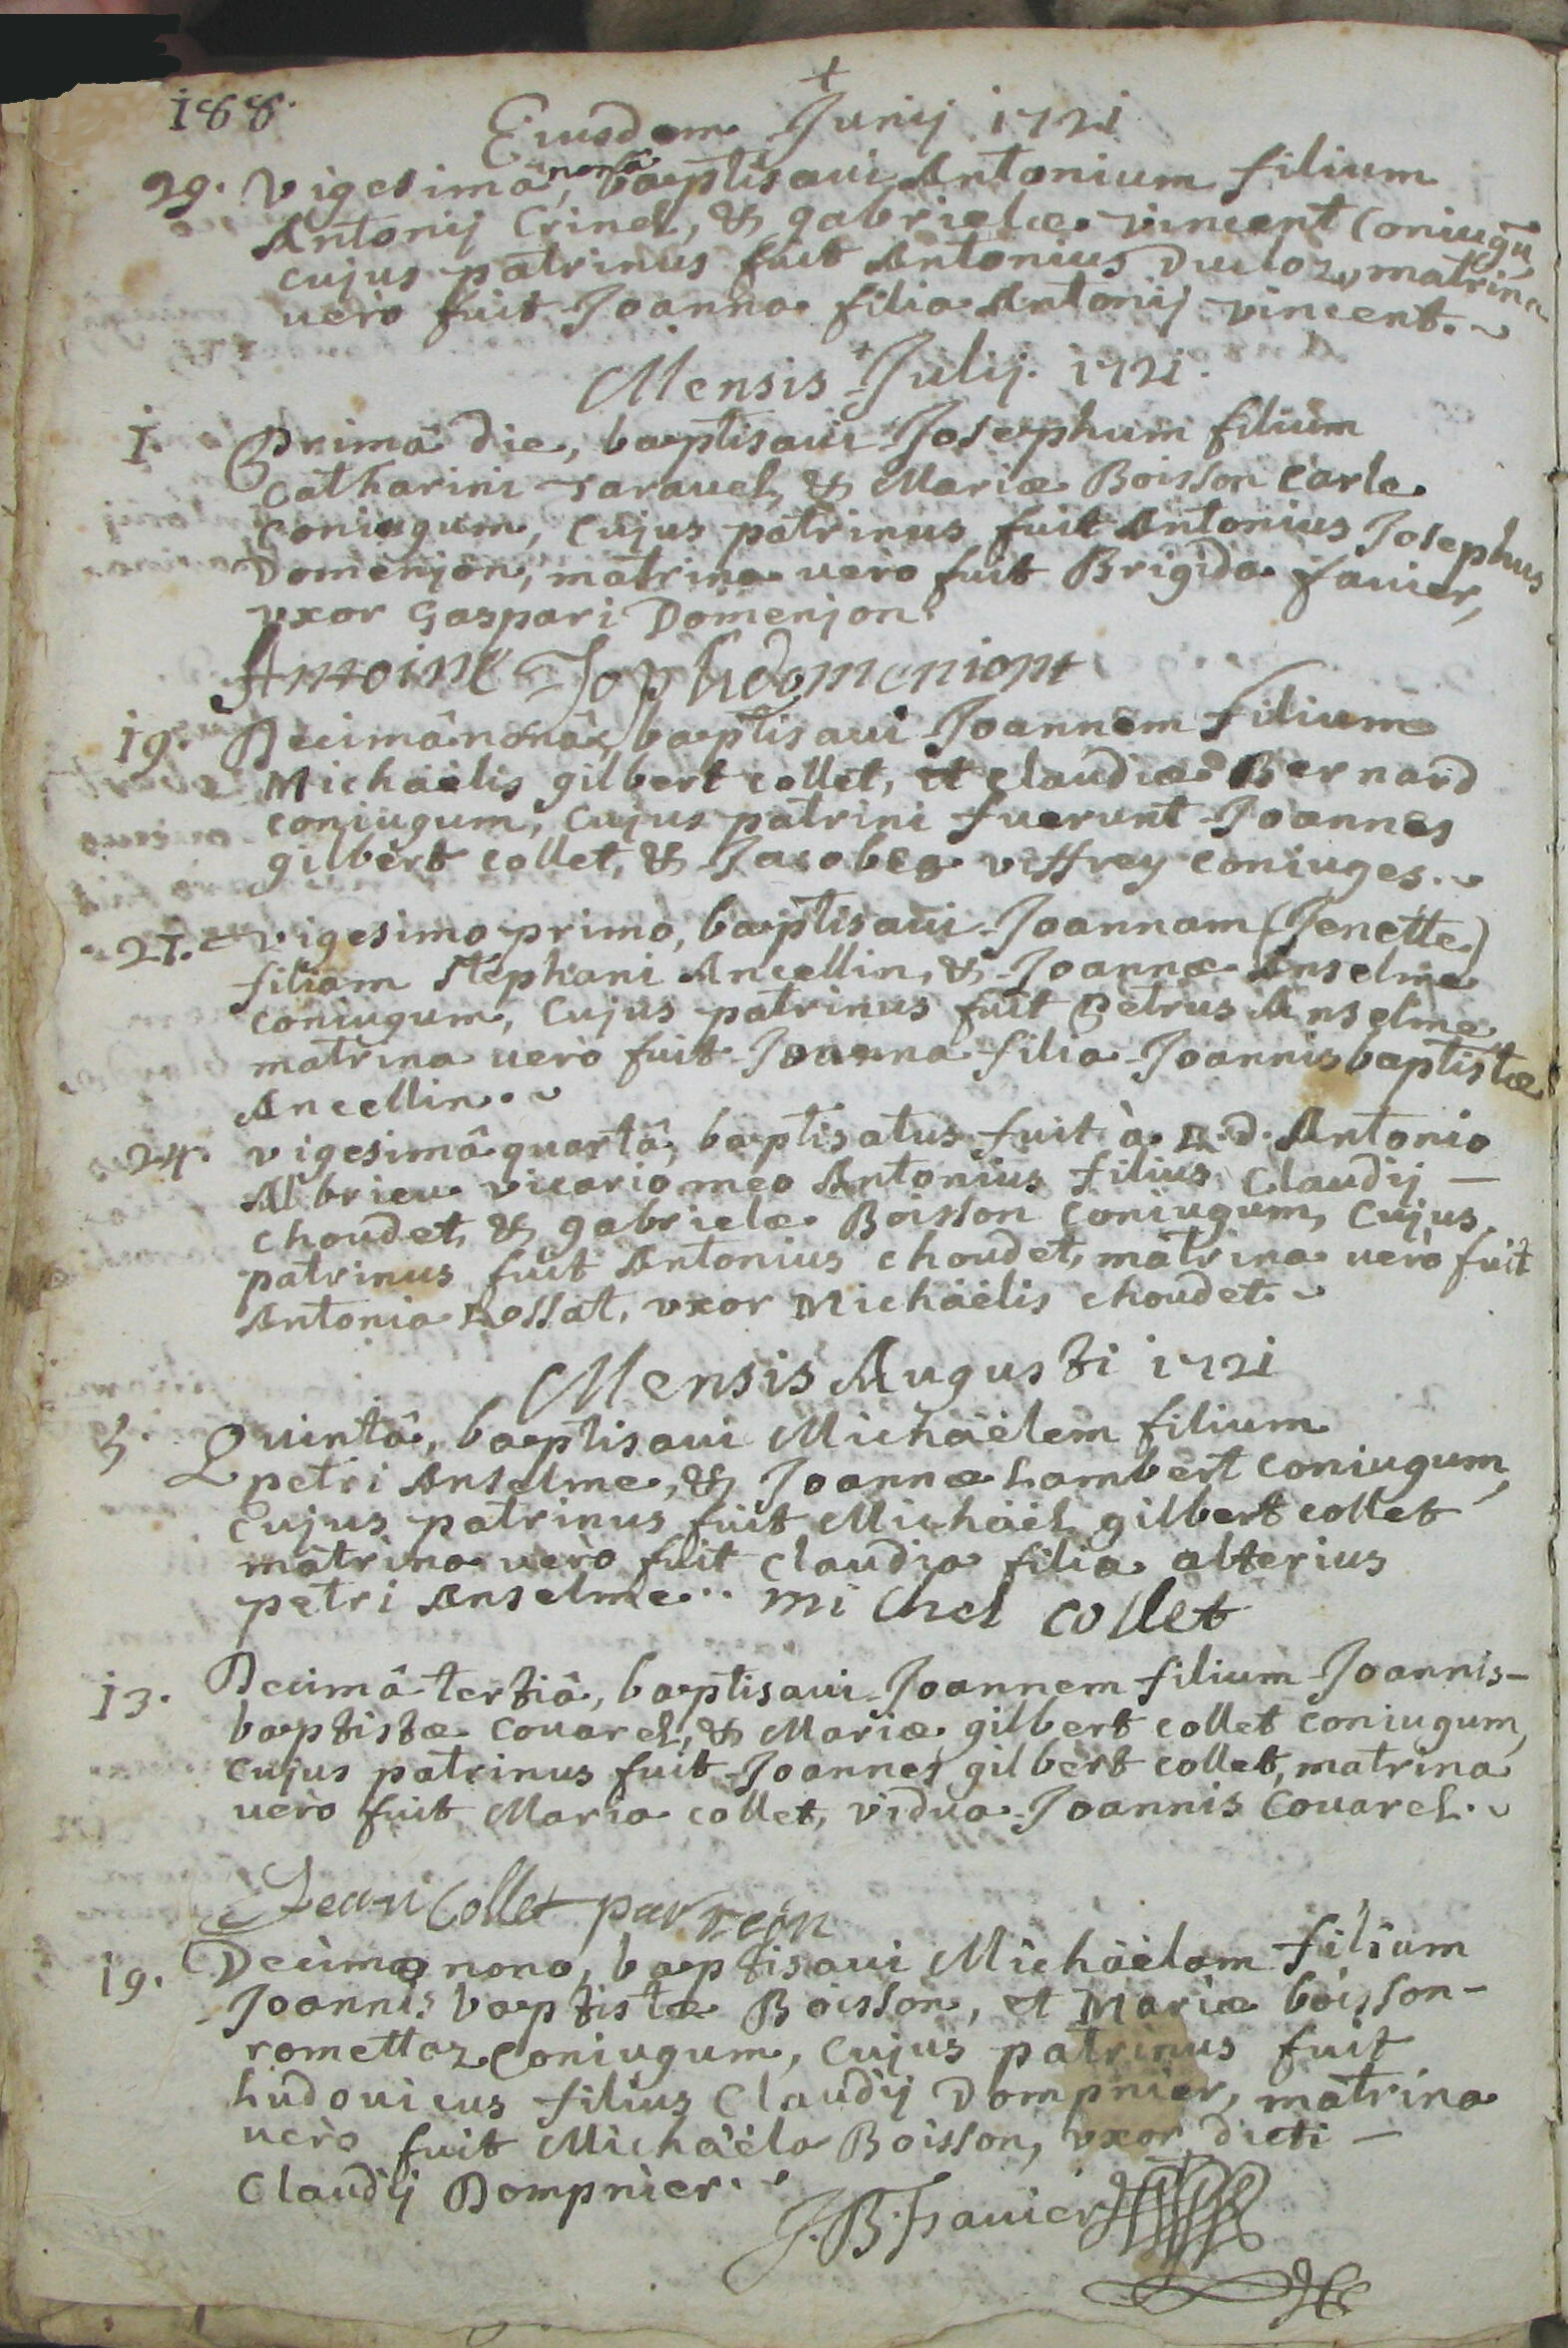 +
188.
Eiusdem Junij 1721
29. Vigesimâ nonâ, baptisavi Antonium filium
Antonij Crinel, & gabrielæ vincent Coniugũ
cujus patrinus fuit Antonius Ducloz, matrina
verò fuit Joanna filia Antonij vincent.
Mensis Julij. 1721.
1. Primâ die, baptisavi Josephum filium
Catharini Taravel, & Mariæ Boisson Carle
coniugum, cujus patrinus fuit Antonius Josephus
Domenjon, matrina verò fuit Brigida favier,
vxor Gaspari Domenjon.
Antoine Joph domeniont
19. Decimânonâ, baptisavi Joannem filium
Michaëlis gilbert collet, et claudiæ Bernard
coniugum, cujus patrini fuerunt Joannes
gilbert collet, & Jacobea viffrey coniuges.
21. vigesimo primo, baptisavi Joannam (Jenette)
filiam Stephani Ancellin, & Joannæ Anselme
coniugum, cujus patrinus fuit Petrus Anselme
matrina verò fuit Joanna filia Joannisbaptistæ
Ancellin.
24. vigesimâ quartâ, baptisatus fuit à R.d. Antonio
Albrieu vicario meo Antonius filius Claudij —
choudet, & gabrielæ Boisson coniugum, Cujus
patrinus fuit Antonius choudet, matrina verò fuit
Antonia Rossat, vxor Michaëlis choudet.
Mensis Augusti 1721
5. Quintâ, baptisavi Michaëlem filium
petri Anselme, & Joannæ Lambert coniugum,
Cujus patrinus fuit Michaël gilbert collet
matrina verò fuit claudia filia alterius
petri Anselme.. mi chel collet
13. Decimâ tertiâ, baptisavi Joannem filium Joannis-
baptistæ Couarel, & Mariæ gilbert collet coniugum,
cujus patrinus fuit Joannes gilbert collet, matrina
verò fuit Maria collet, vidua Joannis Couarel.
Jean Collet parrein
19. Decimo nono, baptisavi Michaëlam filiam
Joannis baptistæ Boisson, et Mariæ boisson-
romettaz Coniugum, cujus patrinus fuit
Ludovicus filius Claudij Dompnier, matrina
verò fuit Michaëla Boisson, vxor dicti —
Claudij Dompnier.
J.B. Favier